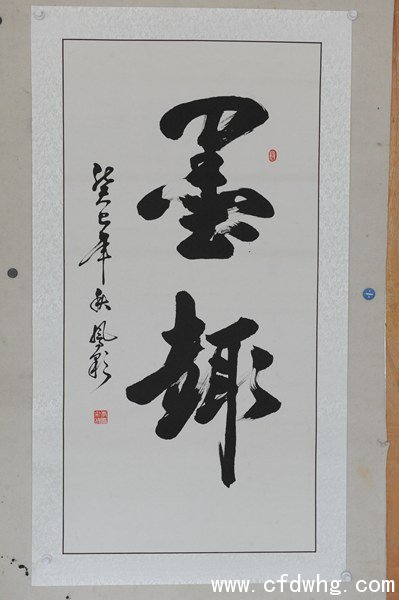 墨趣
癸巳年 彩
www.cfdwhg.com